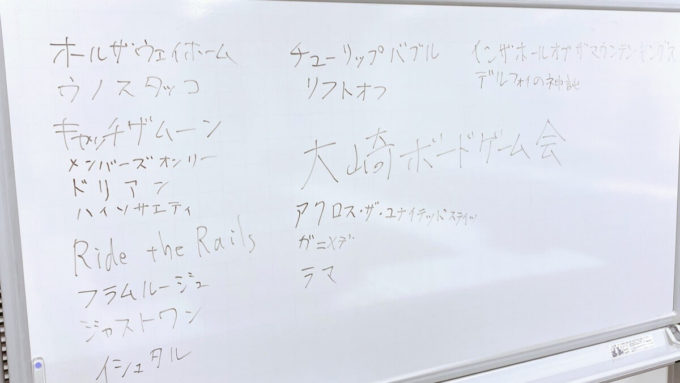 オールザウェイホーム
ウノスタッコ
キャッチザムーン
メンバーズオンリー
ドリアン
ハイソサエティ
Ride the Rails
フラムルージュ
ジャストワン
イシュタル
チューリップバブル
リフトオフ
大崎ボードゲーム会
アクロス・ザ・ユナイテッドステイツ
ガニメデ
ラマ
インザホールオブザマウンテンキングス
デルフォイの神託